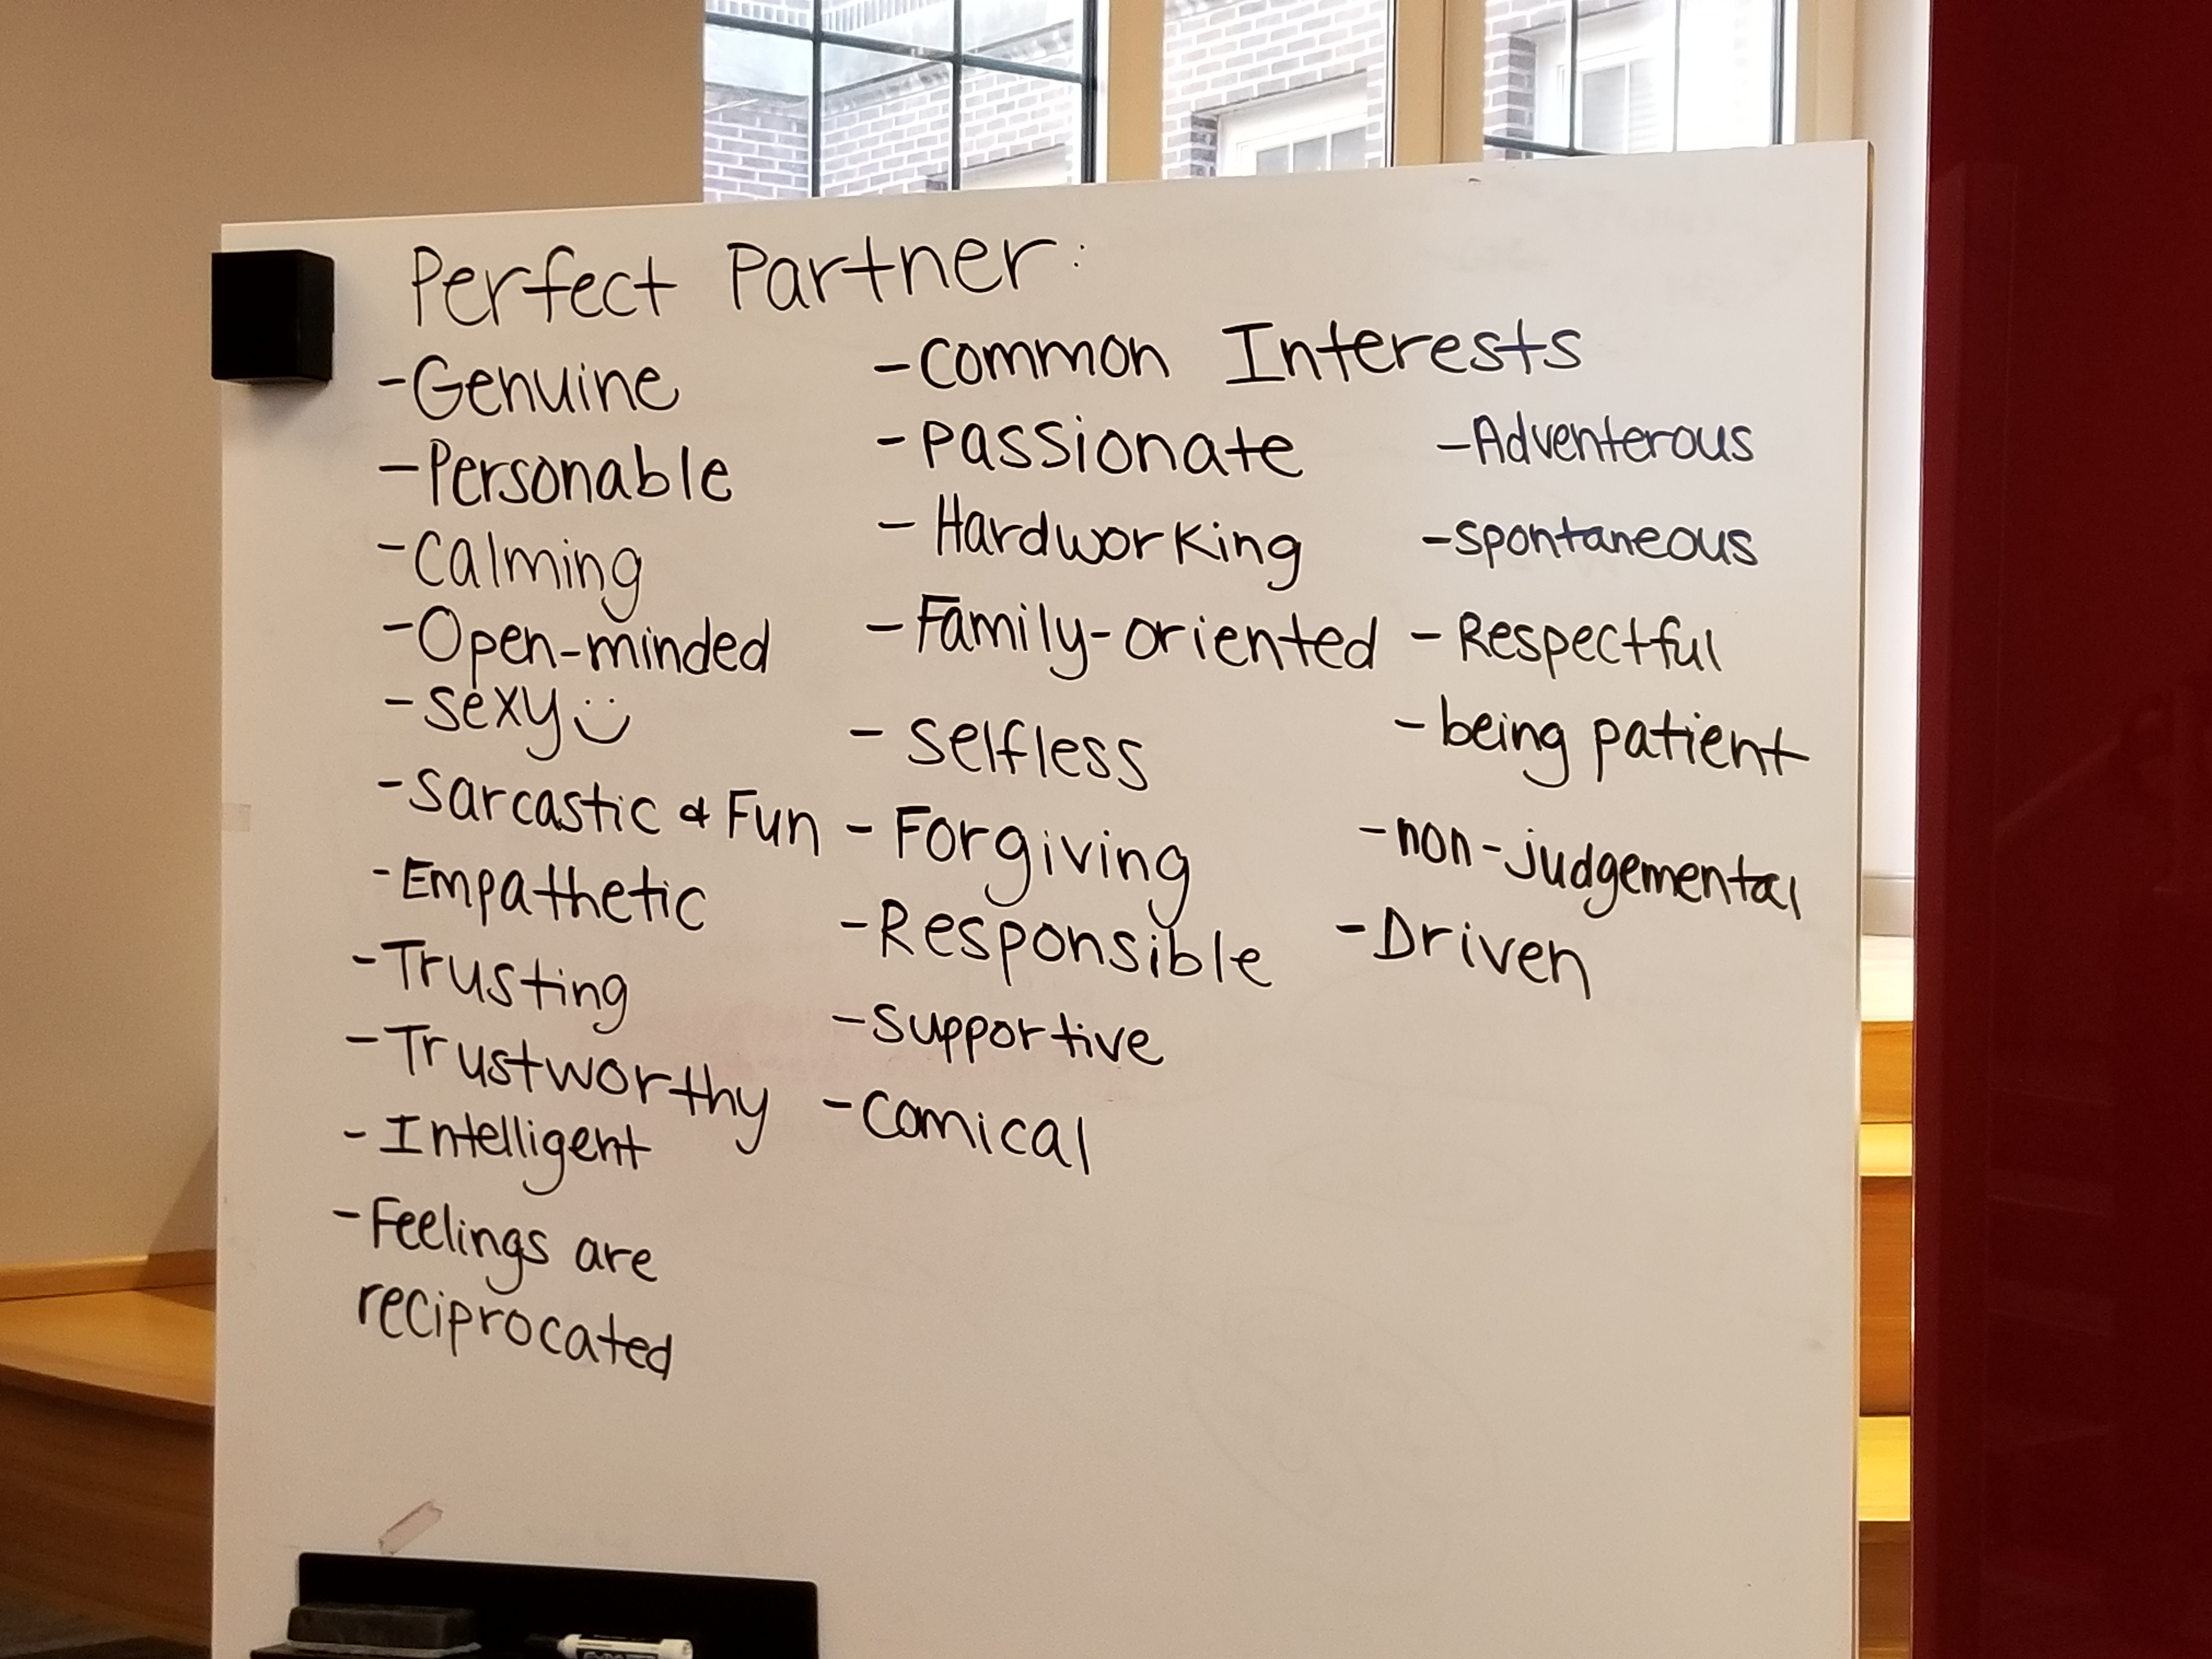 Perfect Partner:
-Genuine
-Personable
-Calming
-Open-minded
-sexy
-Sarcastic & Fun
-Empathetic
-Trusting
-Trustworthy
-Intelligent
-Feelings are
reciprocated
-Common Interests
-Passionate
-Hardworking
-Family-oriented
-Selfless
-Forgiving
-Responsible
-Supportive
-Comical
-Adventerous
-spontaneous
-Respectful
-being patient
-non-judgemental
-Driven